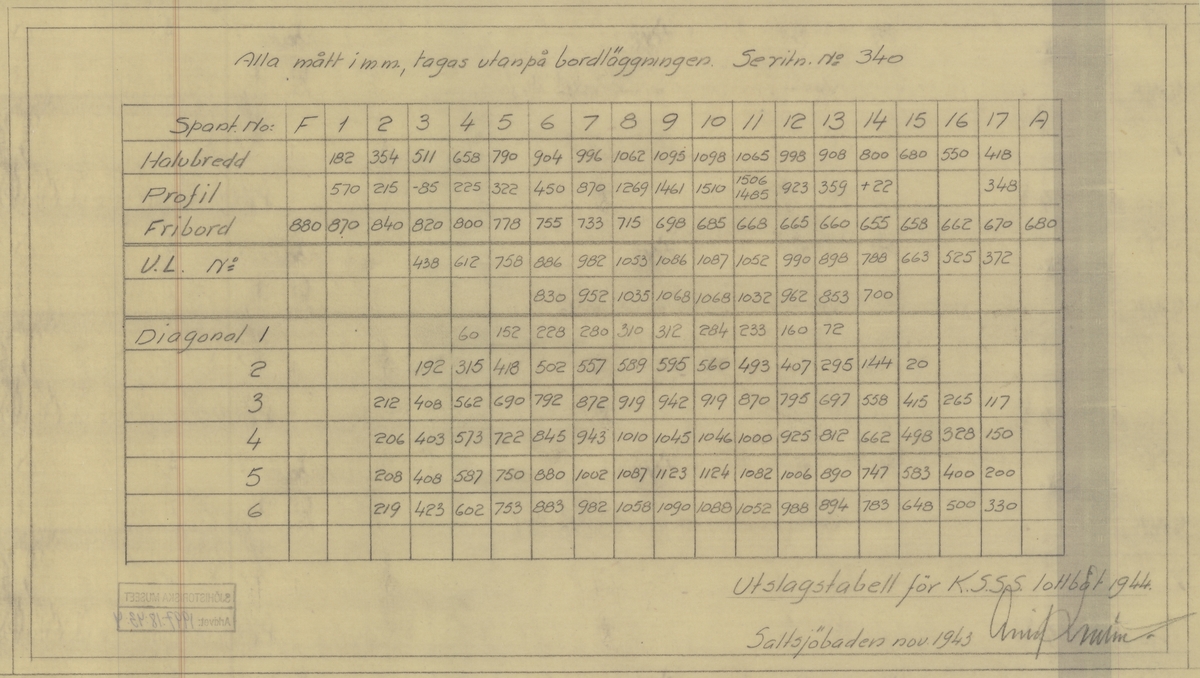 Alla mått i mm, tagas utanpå bordläggningen. Seritn. No 340
Spant. No: F 1 2 3 4 5 6 7 8 9 10 11 12 13 14 15 16 17 A
Halvbredd 182 354 511 658 790 904 996 1062 1095 1098 1065 998 908 800 680 550 418
Profil 570 215 -85 225 322 450 870 1269 1461 1510 1506 1485 923 359 +22 348
Fribord 880 870 840 820 800 778 755 733 715 698 685 668 665 660 655 658 662 670 680
V.L. No 438 612 758 886 982 1053 1086 1087 1052 990 898 788 663 525 372
830 952 1035 1068 1068 1032 962 853 700
Diagonal 1 60 152 228 280 310 312 284 233 160 72
2 192 315 418 502 557 589 595 560 493 407 295 144 20
3 212 408 562 690 792 872 919 942 919 870 795 697 558 415 265 117
4 206 403 573 722 845 943 1010 1045 1046 1000 925 812 662 498 328 150
5 208 408 587 750 880 1002 1087 1123 1124 1082 1006 890 747 583 400 200
6 219 423 602 753 883 982 1058 1090 1088 1052 988 894 783 648 500 330
Utslagstabell för K.S.S.S. lottbåt 1944.
Saltsjöbaden nov. 1943
SJÖHISTORISKA MUSEET
Arkivet: